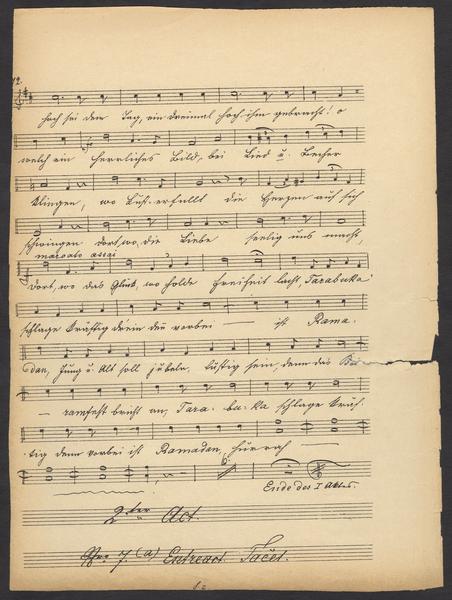 12.
hoch sei dem Tag, ein dreimal hoch ihm gebracht! o
welch ein herrliches Bild, bei Lied u. Becher
klingen, wo Lust erfüllt die Herzen auf sich
schwingen dort, wo die Liebe seelig uns macht,
marcato assai
dort, wo das Glück, wo holde Freiheit lacht, Tarabuka
schlage kräftig drein denn vorbei — ist Rama-
dan, Jung u. Alt soll jubeln, lustig sein, denn das Bai-
— ramfest bricht an, Tara-bu-ka schlage kräf-
tig denn vorbei ist Ramadan, hurrah —
6.
Ende des I Aktes.
2ter Act.
Nro 7. (a) Entreact. Tacet.